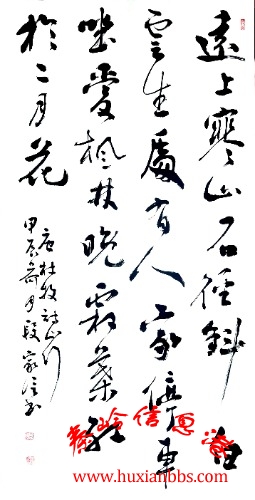 遠上寒山石徑斜白
雲生處有人家停車
坐愛楓林晚霜葉紅
於二月花
唐杜牧詩山行
甲辰月段家信書
信息港
www.huxianbbs.com